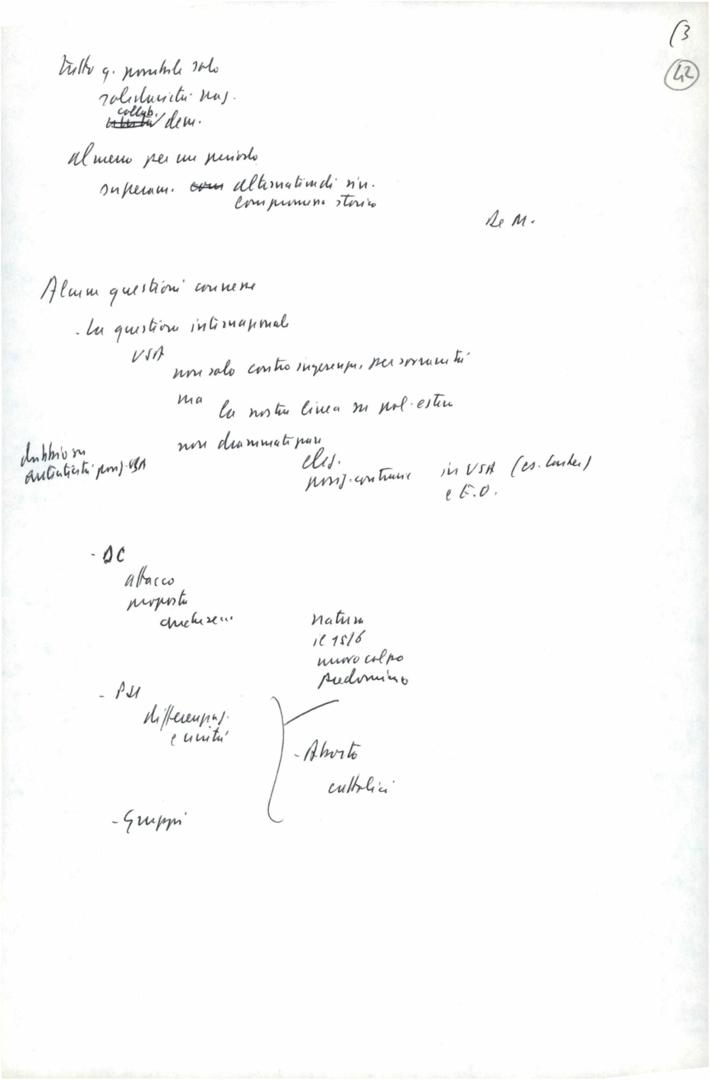 (3
42
tutto q. possibile solo
solidarietà naz.
collab.
unità dem.
almeno per un periodo
superam. com alternativa di sin.
compromesso storico
De M.
Alcune questioni connesse
- La questione internazionale
USA
non solo contro ingerenza, per sovranità
ma
la nostra linea su pol. estera
non drammatizzare
dubbio su
autenticità posiz. USA
posiz. contrarie in USA (es. Carter)
e E.O.
- DC
attacco
proposta
natura
il 15/6
nuovo colpo
predominio
- PSI
differenziaz.
e unità
- Aborto
cattolici
- Gruppi